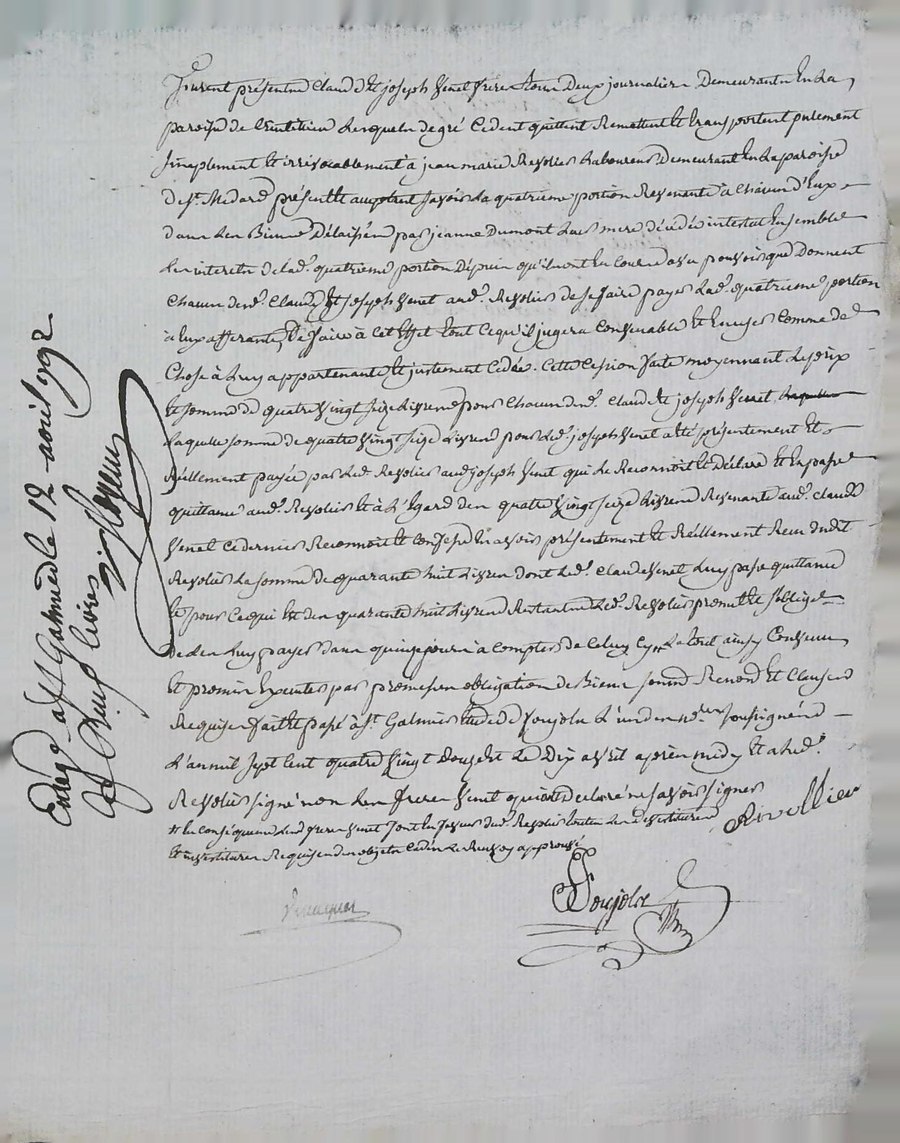 Furent présents Claude et joseph Venet frères tous Deux journaliers Demeurants En La
paroisse de Lesquels de gré Cedent quittent Remettent Et transportent purement
simplement Et irrévocablement à jean marie Revolier Laboureur Demeurant En La paroisse
De st. Medard présent Et acceptant savoir La quatrieme portion Revenante à Chacun d'Eux
dans Les Biens Délaissés par jeanne Dumont Leur mere décédée intestat Ensemble
Les interets de lad. quatrieme portion Depuis qu'ils ont En Cours avec pouvoir que Donnent
Chacun desd. Claude Et joseph Venet aud. Revolier de se faire payer Lad. quatrieme portion
à Eux afferante, Et De faire à Cet Effet tout Ce qu'il jugera Convenable Et Comme de
Chose à Luy appartenante Et justement Cedée. Cette Cession faite moyennant Le prix
Et somme de quatre Vingt seize Livres pour Chacun desd. Claude Et joseph Venet
Laquelle somme de quatre Vingt seize Livres pour Led. joseph Venet a Eté présentement Et
Réellement payée par Led. Revolier aud. joseph Venet qui Le Reconnoit Et déclare Et En passe
quittance aud. Revolier Et à L'Egard des quatre Vingt seize Livres Revenants aud. Claude
Venet Ce dernier Reconnoit Et Confesse En avoir présentement Et Réellement Reçu dudit
Revolier La somme de quarante huit Livres dont Led. Claude Venet Luy passe quittance
Et pour Ce qui Est des quarante huit Livres Restantes Led. Revolier promet Et s'oblige
De Les Luy payer dans quinze jours à Compter de Celuy Cy, Le tout ainsy Convenu
Et promis Executer par promesses obligation de Biens soumis Renond. Et Clauses
Requises fait Et passé à st. Galmier Etude de Soujolre L'un des nores soussignés
L'an mil sept Cent quatre Vingt Douze Et Le Dix avril après midy Et a Led.
Revolier signé non Les freres Venet qui ont declaré ne savoir signer
+ En Conséquence Lesd. freres Venet font En faveur dud. Revolier toutes Les devestitures
Et investitures Requises des objets Cedés Le Renvoy approuvé
Rivollier
Soujolre
Enreg. a St Galmier le 12 avril 1792